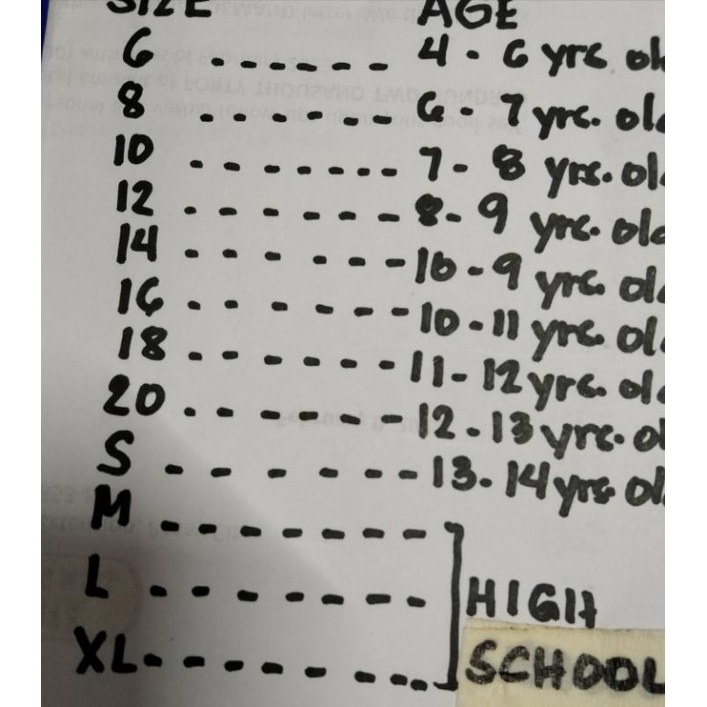 SIZE AGE
6 - - - - - - 4 - 6 yrs ol
8 - - - - - - - 6 - 7 yrs. old
10 - - - - - - - 7 - 8 yrs. ol
12 - - - - - - - 8 - 9 yrs. old
14 - - - - - - - 10 - 9 yrs. old
16 - - - - - - - 10 - 11 yrs. ol
18 - - - - - - - 11 - 12 yrs. old
20 - - - - - - - 12 - 13 yrs. o
S - - - - - - - 13 - 14 yrs ol
M - - - - - - - -
L - - - - - - - HIGH
XL - - - - - - - - SCHOOL